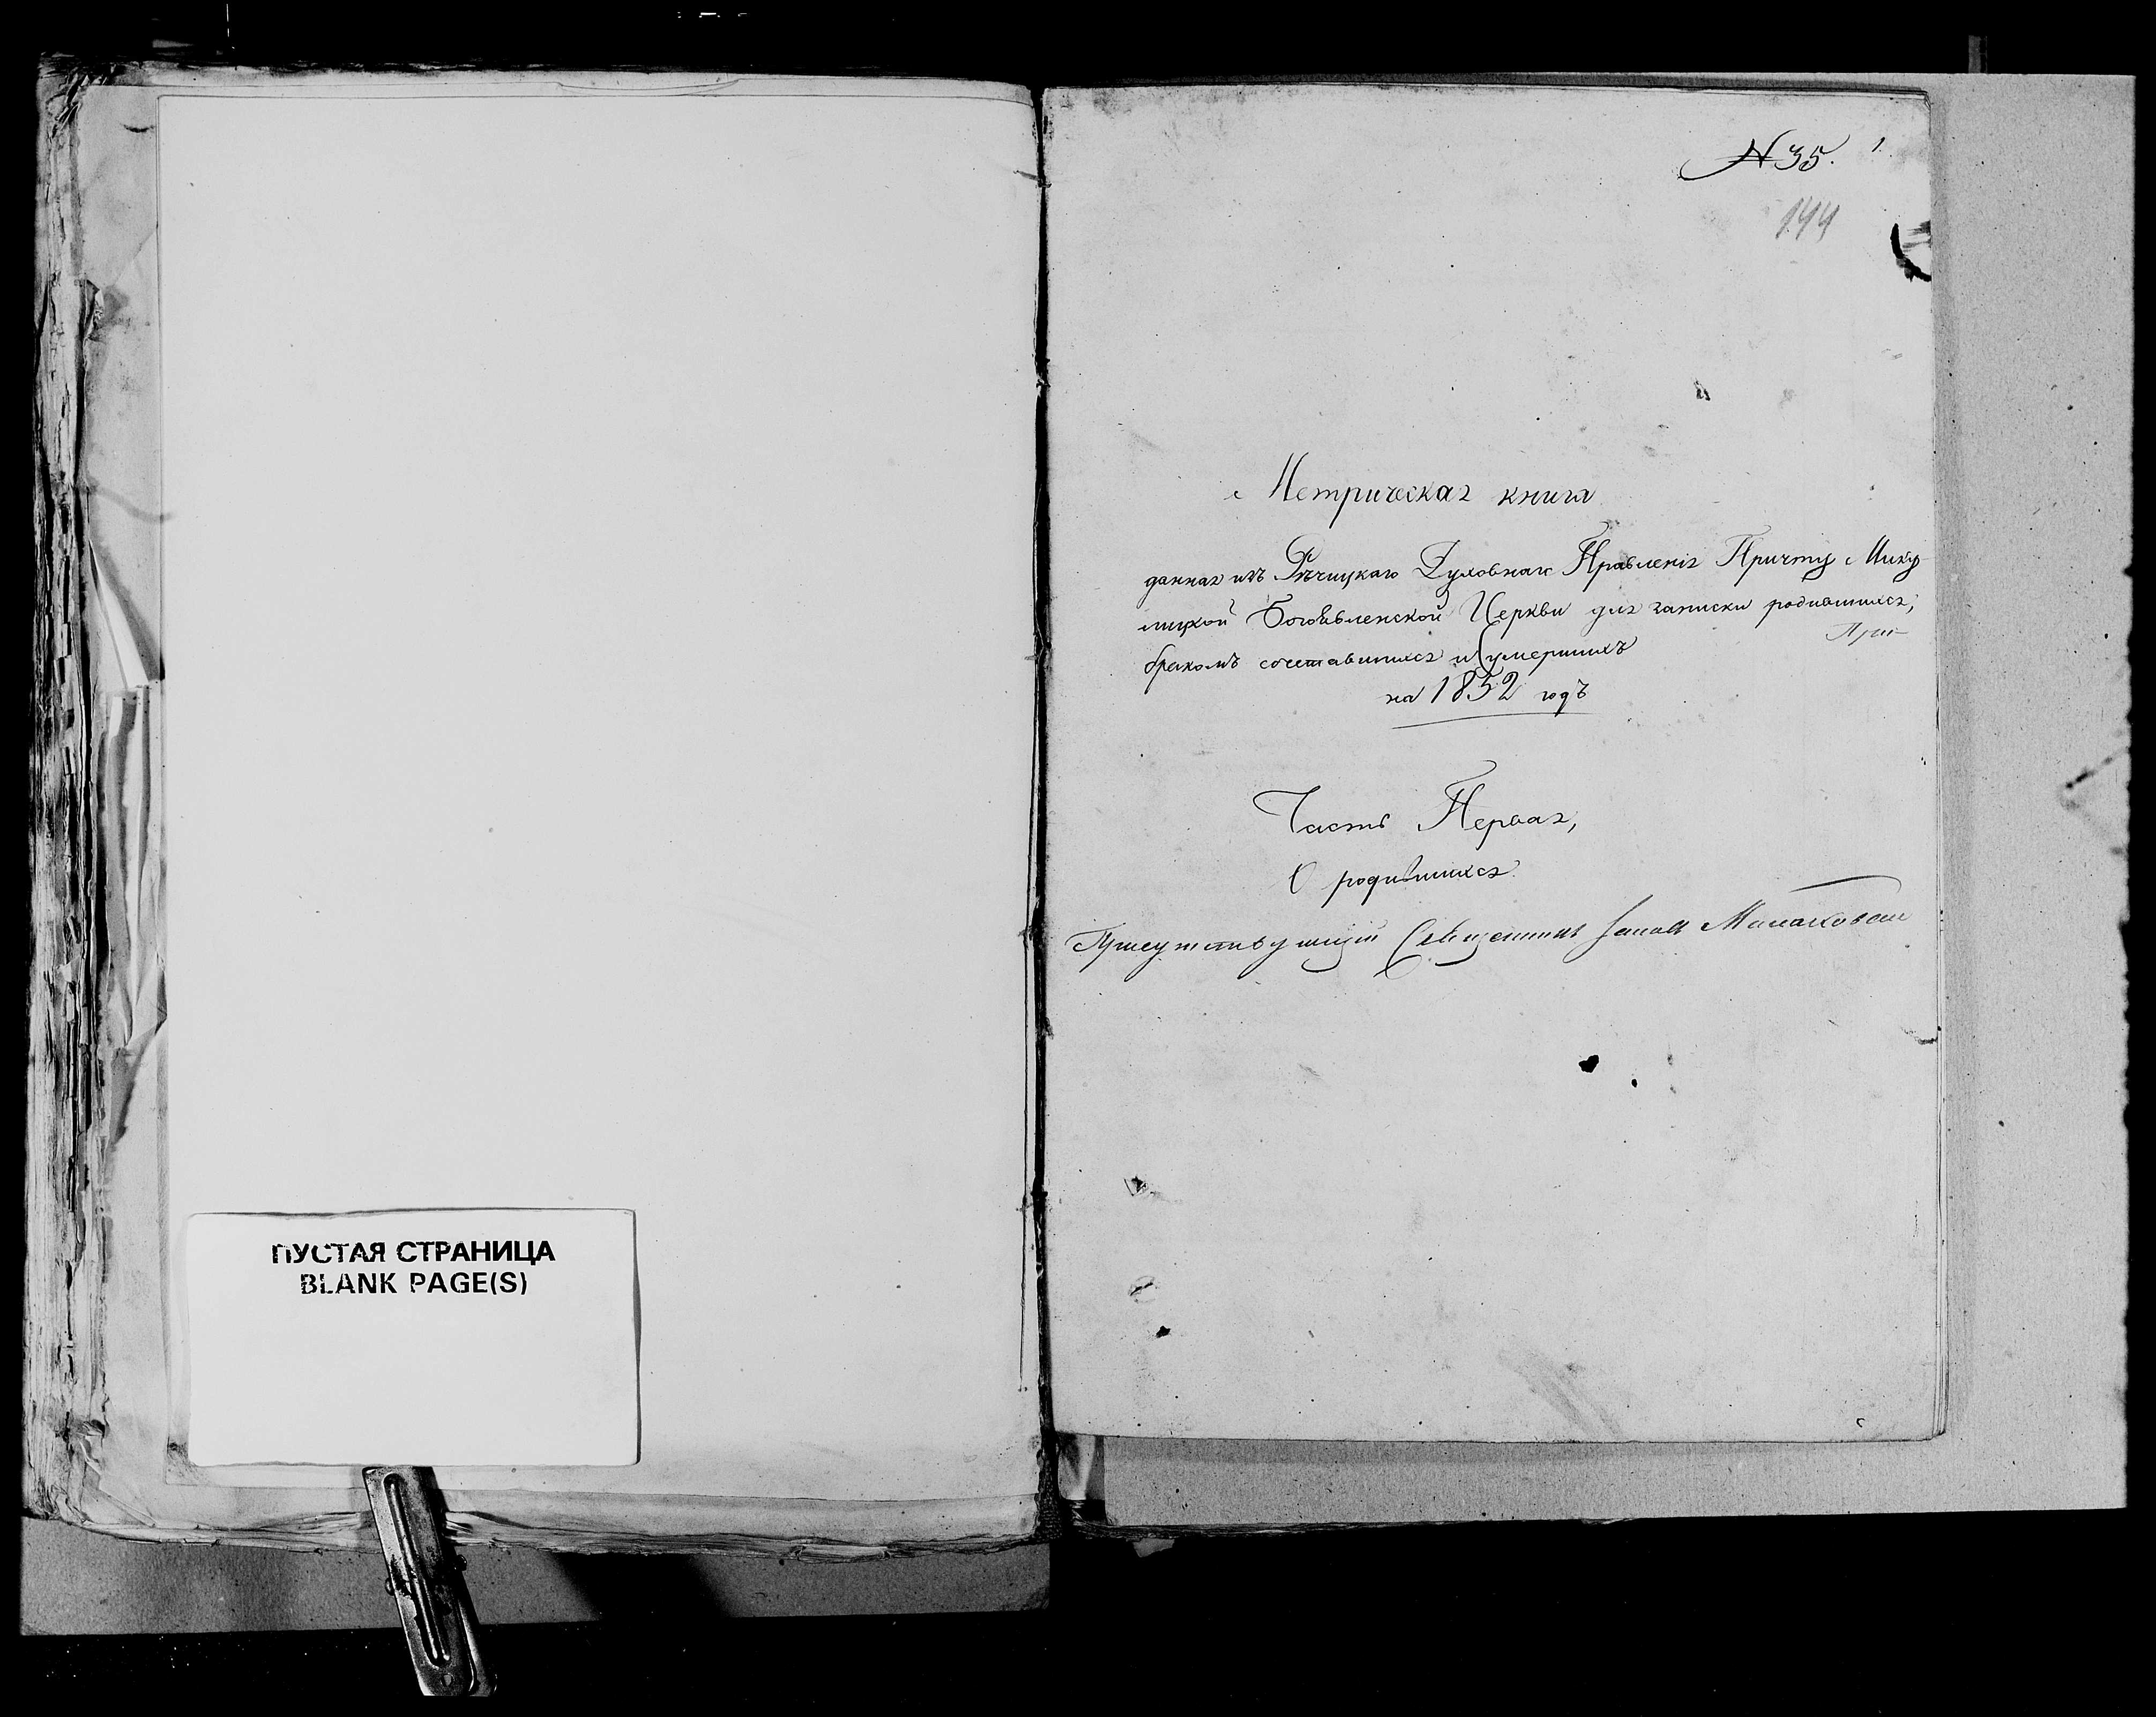 ПУСТАЯ СТРАНИЦА
BLANK PAGE(S)
№ 35. 1.
144
Метрическая книга
данная изъ Рѣчицкаго Духовнаго Правленія Причту Мику
лицкой Богоявленской Церкви для записки родившихся,
бракомъ сочетавшихся и умершихъ
на 1852 годъ
Часть Первая,
О родившихся.
Присутствующій Священникъ Малаховскій